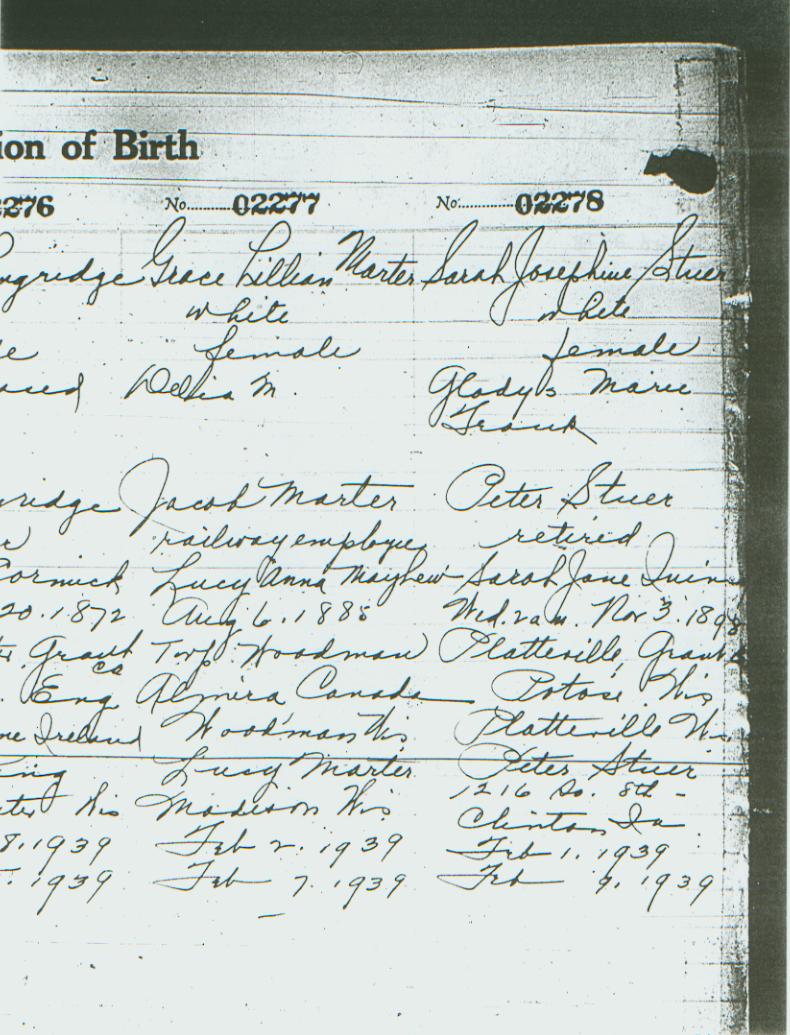 ion of Birth
276 No. 02277 No. 02278
ngridge Grace Lillian Marter Sarah Josephine Stuer
white white
e female female
ased Delia M. Gladys Marie
Frank
ridge Jacob Marter Peter Stuer
railway employee retired
Cormick Lucy Anna Mayhew Sarah Jane Quinn
20.1872 Aug 6.1885 Wed. 2 a.m. Nov 3.1898
Grant Twp. Woodman Platteville, Grant
co
Eng Almira Canada Potosi Wis
ne Ireland Woodman Wis Platteville Wis
ing Lucy Marter Peter Stuer
1216 So. 8th -
ter Wis Madison Wis Clinton Ia
8.1939 Feb 2. 1939 Feb 1. 1939
. 1939 Feb 7. 1939 Feb 9. 1939